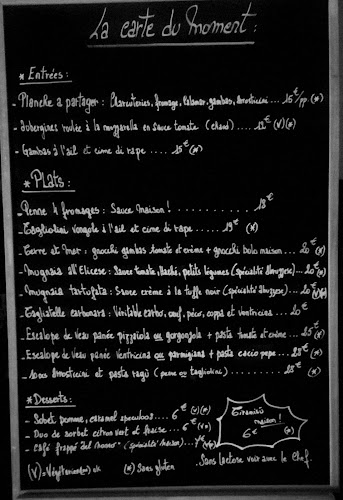 La carte du moment :
* Entrées :
- Planche a partager : Charcuteries, fromage, Calamar, gambas, Arosticini ... 15€/pp (*)
- Aubergines roulée à la mozzarella en sauce tomate (chaud) .... 12€ (V)(*)
- Gambas à l'ail et cime di rape .... 15€ (*)
* Plats :
- Penne 4 fromages : Sauce maison ! ......... 18€
- Tagliolini vongole à l'ail et cime di rape ..... 19€ (*)
- Terre et Mer : gnocchi gambas tomate et crème + gnocchi bolo maison ... 20€ (*)
- Mugnaia all'Elicese : Sauce tomate, Haché, petits légumes (spécialité Abruzzese) .. 20€ (*)
- Mugnaia tartufata : Sauce crème à la truffe noir (spécialité Abruzzese) .. 20€ (V)(*)
- Tagliatelle carbonara : Véritable carbo, oeuf, péco, coppa et ventricina ... 20€
- Escalope de veau panée pizzaiola ou gorgonzola + pasta tomate et crème ... 25€ (*)
- Escalope de veau panée Ventricina ou parmigiana + pasta cacio pepe ... 28€ (*)
- Arosticini et pasta ragù (penne ou tagliolini) ...... 28€ (*)
* Desserts :
- Sorbet pomme, caramel speculoos .... 6€ (V)(*)
- Duo de sorbet citron vert et fraise ... 6€ (V*)
- Café frappé (spécialité maison)
Tiramisù
maison !
6€ (*)
(V) = Végétarien ok (*) Sans gluten
. Sans lactose voir avec le Chef.